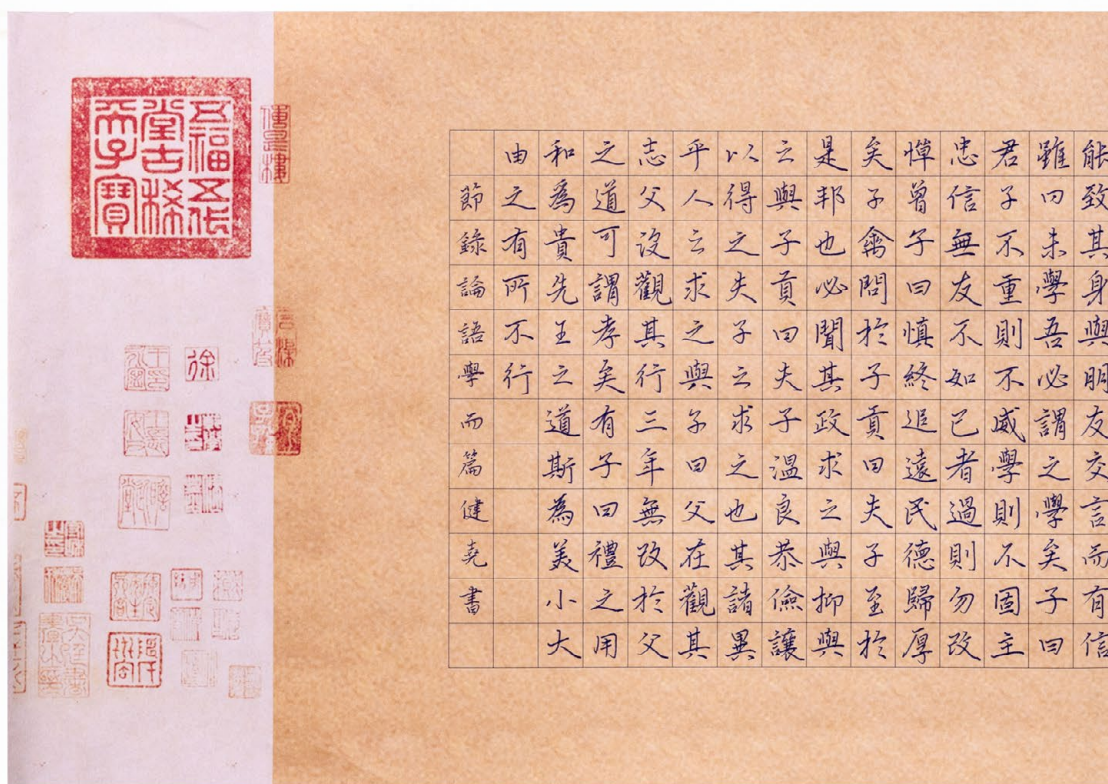 能致其身與朋友交言而有信
雖曰未學吾必謂之學矣子曰
君子不重則不威學則不固主
忠信無友不如己者過則勿改
憚曾子曰慎終追遠民德歸厚
矣子禽問於子貢曰夫子至於
是邦也必聞其政求之與抑與
之與子貢曰夫子溫良恭儉讓
以得之夫子之求之也其諸異
乎人之求之與子曰父在觀其
志父沒觀其行三年無改於父
之道可謂孝矣有子曰禮之用
和為貴先王之道斯為美小大
由之有所不行
節錄論語學而篇健堯書
五福五代
堂古稀
天子寶
徐